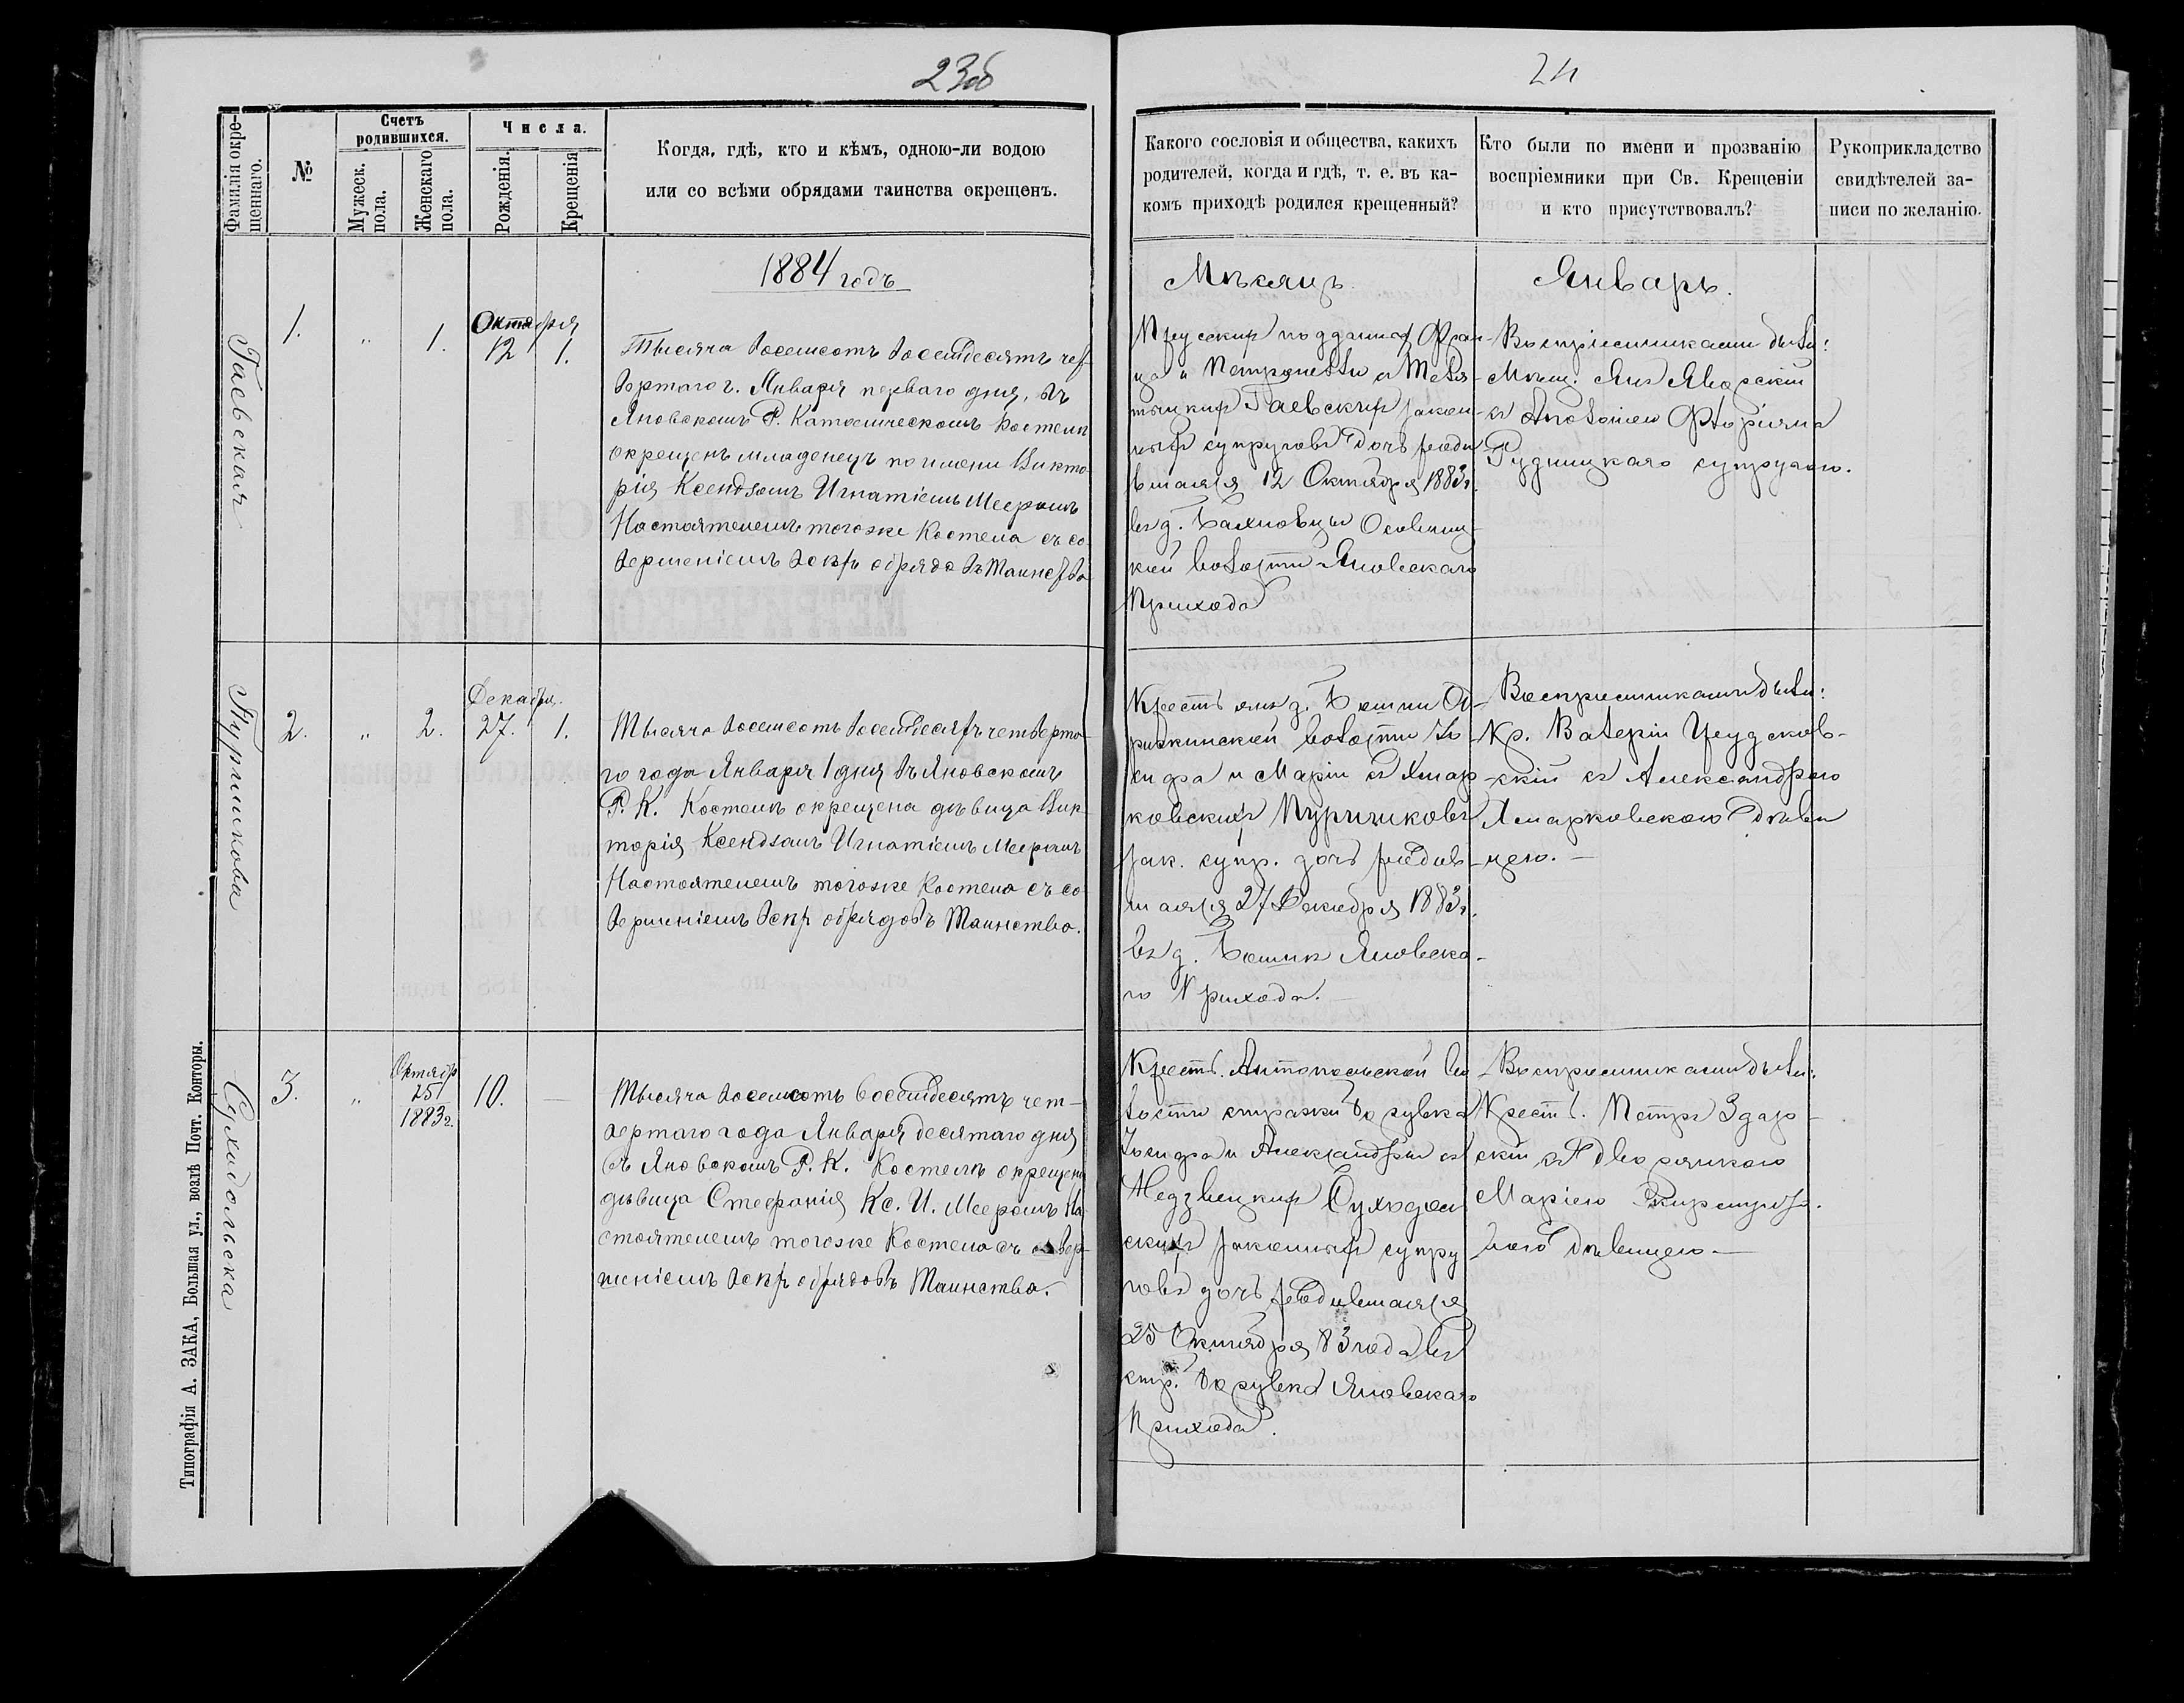 23об
Фамилія окре-
щеннаго.
№
Счетъ
родившихся.
Мужеск.
пола.
Женскаго
пола.
Числа.
Рожденія.
Крещенія
Когда, гдѣ, кто и кѣмъ, одною-ли водою
или со всѣми обрядами таинства окрещенъ.
1884 годъ
Гаевская
1.
„
1.
Октября
12
1.
Тысяча восемсотъ восемдесятъ чет
вертаго г. Января перваго дня, въ
Яновскомъ Р. Католическомъ Костелѣ
окрещенъ младенецъ по имени Викто
рія Ксендзомъ Игнатіемъ Меером
Настоятелемъ тогоже Костела съ со
вершеніемъ всѣхъ обрядовъ Таинства
Пуришкова
2.
„
2.
Декабря
27.
1.
Тысяча восемсотъ восемдесятъ четверта
го года Января 1 дня въ Яновскомъ
Р. К. Костелѣ окрещена дѣвица Вик
торія Ксендзомъ Игнатіемъ Меером
Настоятелемъ тогоже Костела съ со
вершеніемъ всѣхъ обрядовъ Таинства.
Суходольска
3.
„
Октябр
25
1883 г.
10.
—
Тысяча восемсотъ восемдесятъ чет-
вертаго года Января десятаго дня
въ Яновскомъ Р. К. Костелѣ окрещена
дѣвица Стефанія Кс. И. Меером На
стоятелемъ тогоже Костела съ совер-
шеніемъ всѣхъ обрядовъ Таинства.
Типографія А. ЗАКА, Большая ул., возлѣ Почт. Конторы.
24
Какого сословія и общества, какихъ
родителей, когда и гдѣ, т. е. въ ка-
комъ приходѣ родился крещенный?
Кто были по имени и прозванію
воспріемники при Св. Крещеніи
и кто присутствовалъ?
Рукоприкладство
свидѣтелей за-
писи по желанію.
Мѣсяцъ
Январь.
Прусскихъ подданныхъ Фран-
ца и Петронели
Гаевскихъ закон-
ныхъ супруговъ дочь родив
шаяся 12 Октября 1883 г.
въ д.
кой волости Яновскаго
Прихода
Воспріемниками были:
Мѣщ. Янъ Яворскій
съ Аполоніею Флоріяна
Рудницкаго супругою.
Крестьянъ д.
волости Іо
сифа и Маріи съ Ямар
ковскихъ Пуришковъ
зак. супр. дочь родив-
шаяся 27 Декабря 1883 г.
въ д. Яновска-
го Прихода.
Воспріемниками были:
Кр. Валерій
скій съ Александрою
Ямарковскою дѣви
цею. —
Крест. Антопольской во
лости стражи
Іосифа и Александры съ
Недзвецкихъ Суходол
скихъ законныхъ супру
говъ дочь родившаяся
25 Октября 83 года въ
стр. Яновскаго
Прихода.
Воспріемниками были:
Крест. Петръ Здар-
скій съ дворянкою
Маріею
дѣвицею —